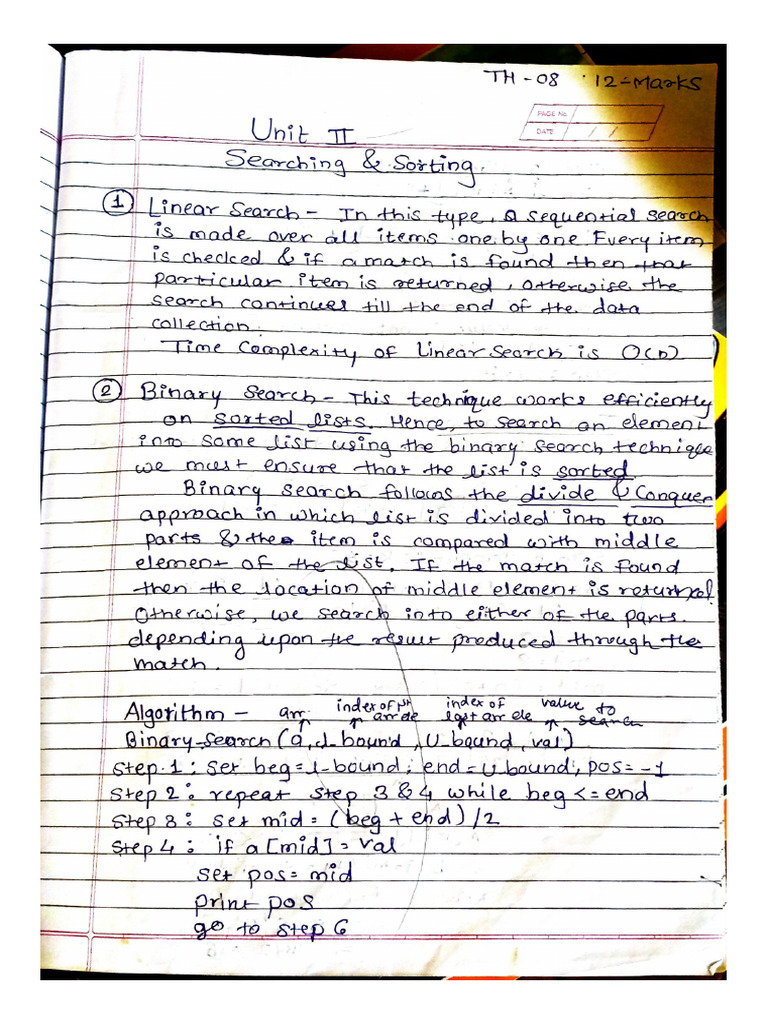 TH-08 12-Marks
PAGE No
DATE / /
Unit II
Searching & Sorting.
① Linear Search - In this type, a sequential search
is made over all items one by one. Every item
is checked & if a match is found then that
particular item is returned, otherwise the
search continues till the end of the data
collection.
Time Complexity of Linear Search is O(n)
② Binary Search - This technique works efficiently
on sorted lists. Hence, to search an element
into some list using the binary search technique
we must ensure that the list is sorted.
Binary search follows the divide & Conquer
approach in which list is divided into two
parts & the item is compared with middle
element of the list. If the match is found
then the location of middle element is returned.
Otherwise, we search into either of the parts.
depending upon the result produced through the
match.
Algorithm - arr index of 1st arr ele index of last arr ele value to search
Binary-Search (a, l_bound, U_bound, val)
Step 1: set beg = l-bound; end = U bound; pos = -1
Step 2: repeat step 3 & 4 while beg <= end
Step 3: set mid = (beg + end) / 2
Step 4: if a [mid] = val
set pos = mid
print pos
go to step 6